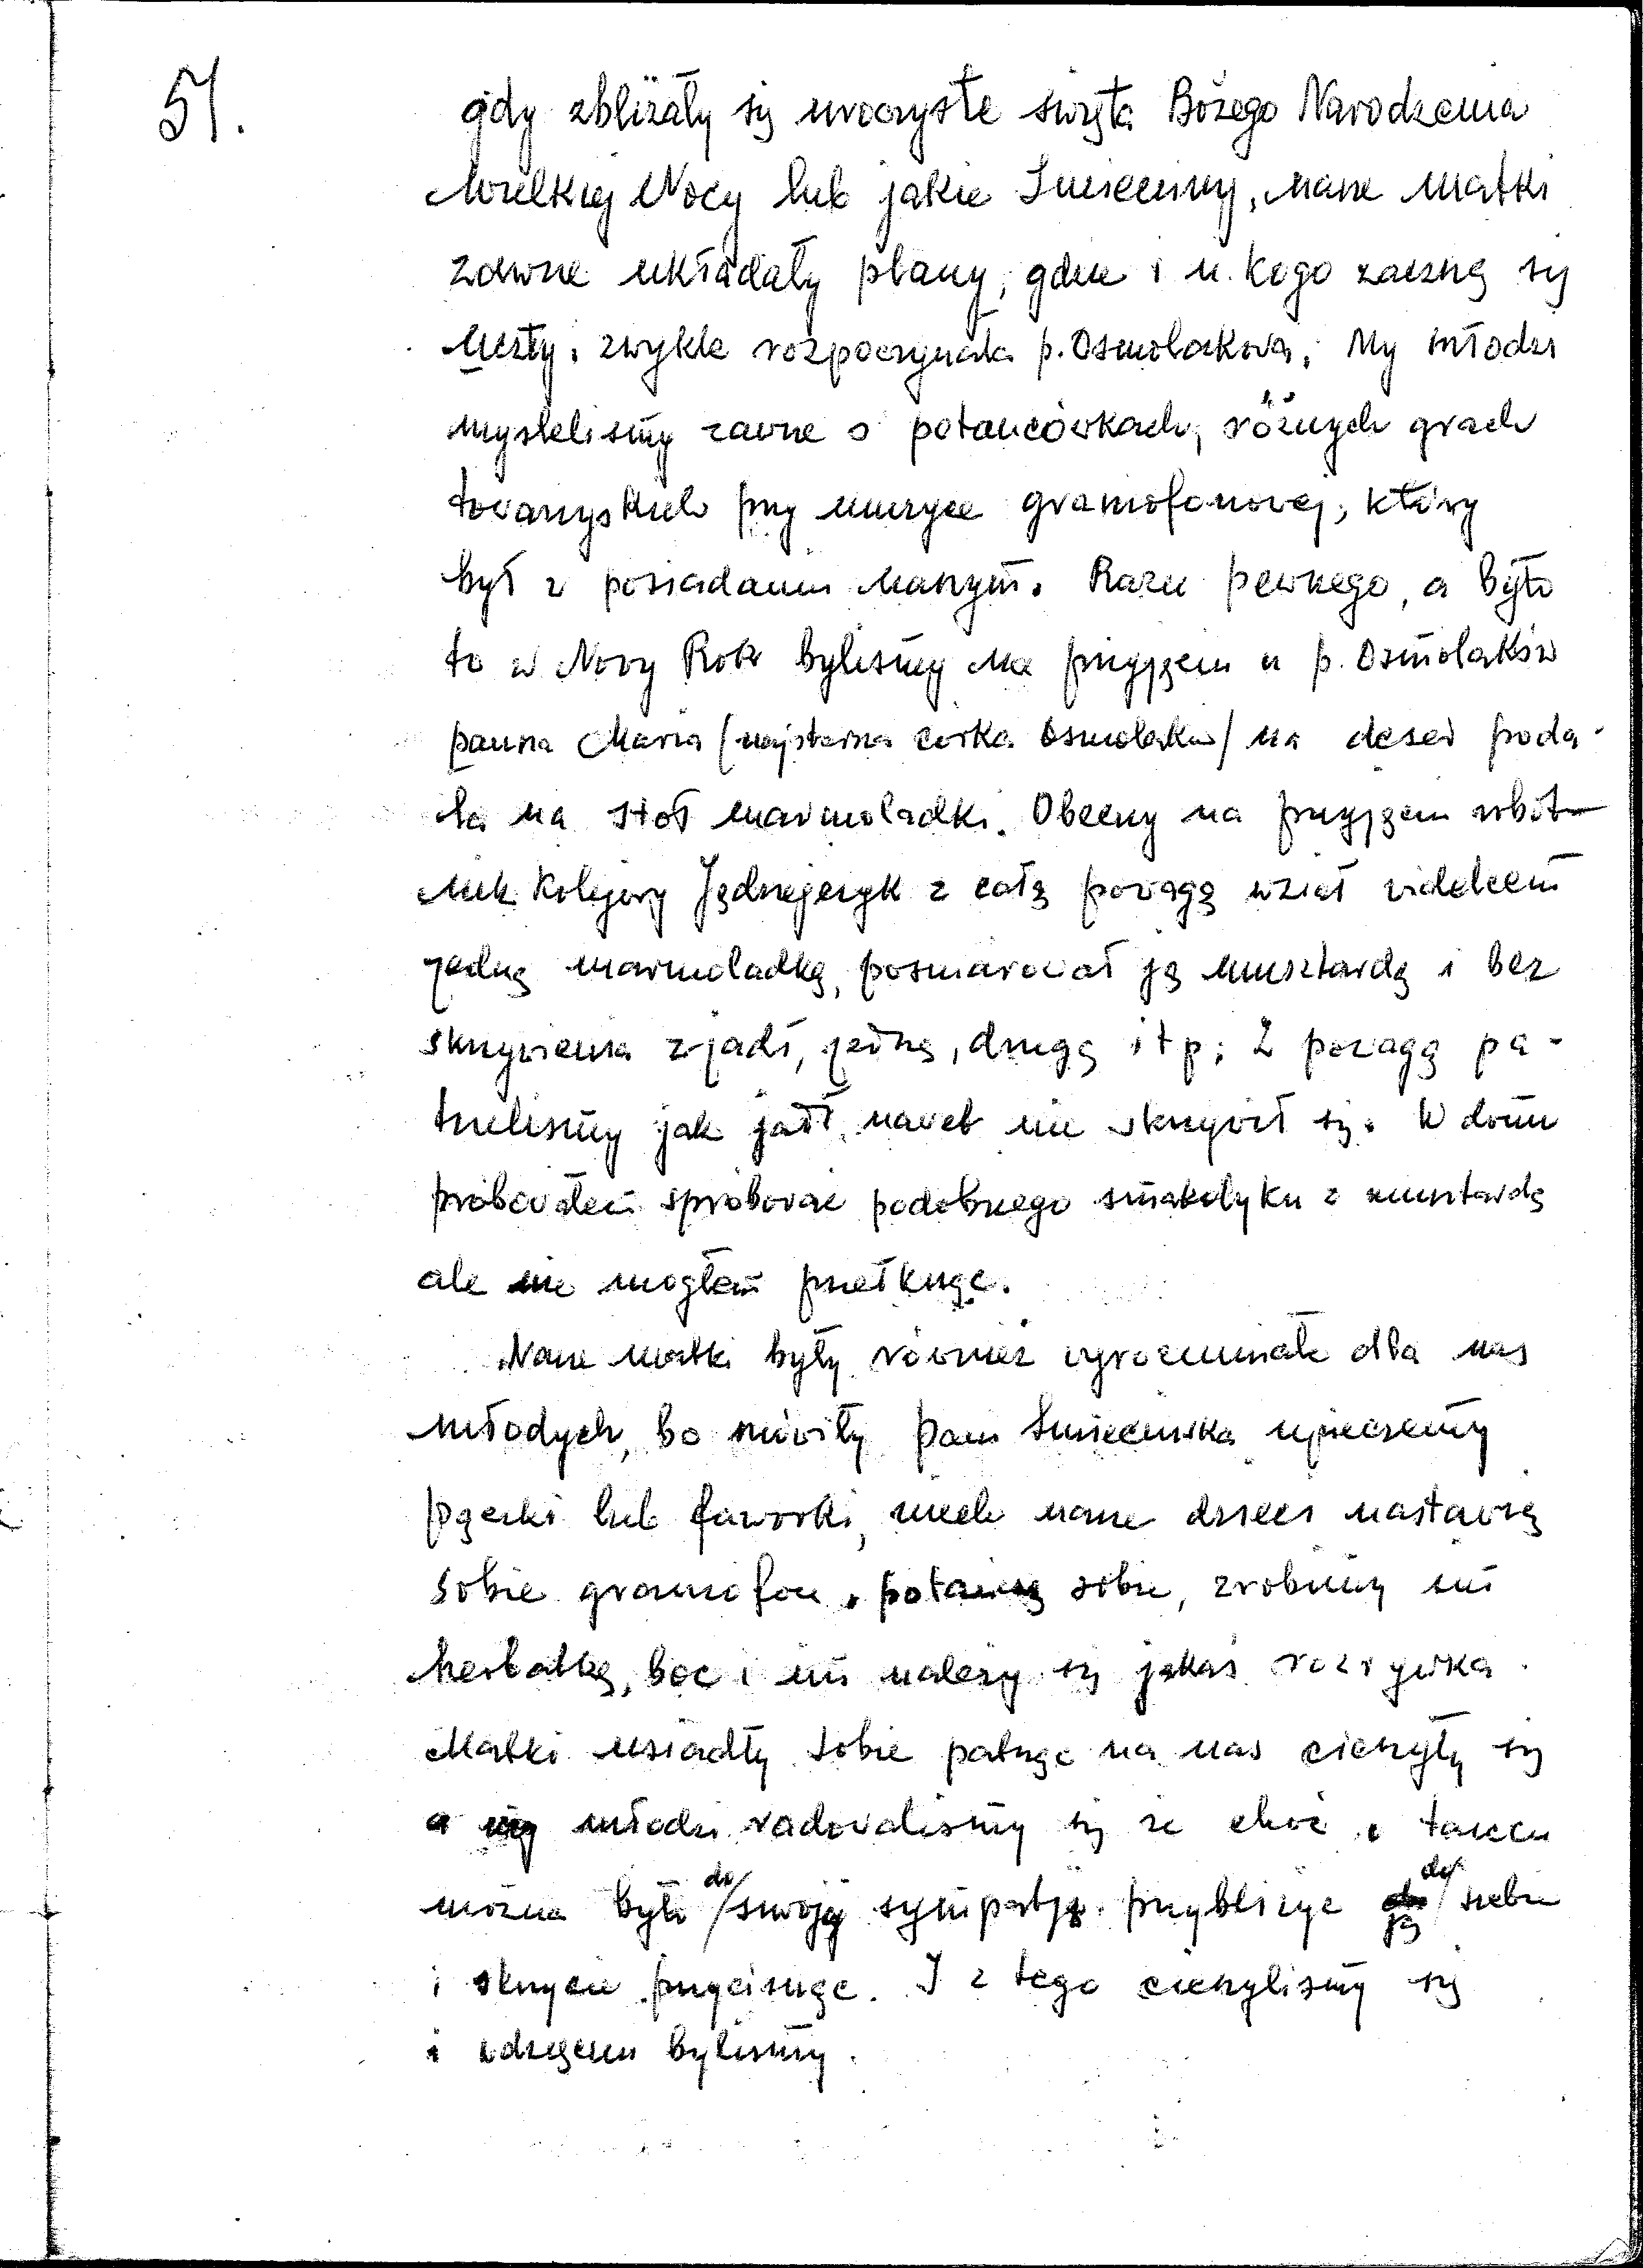 51.
gdy zbliżały się uroczyste święta Bożego Narodzenia
Wielkiej Nocy lub jakie Imieniny, nasze Matki
zawsze układały plany, gdzie i u kogo zaczną się
uczty, zwykle rozpoczynała p. Osmolakowa, My młodzi
myśleliśmy zawsze o potańcówkach, różnych grach
towarzyskich przy muzyce gramofonowej, który
był w posiadaniu naszym. Razu pewnego, a było
to w Nowy Rok byliśmy na przyjęciu u p. Osmolaków
panna Maria /najstarsza córka Osmolaków/ na deser poda-
ła na stół marmoladki. Obecny na przyjęciu robot-
nik kolejowy Jędrzejczyk z całą powagą wziął widelcem
jedną marmoladkę, posmarował ją musztardą i bez
skrzywienia zjadł, jedną, drugą itp; Z powagą pa-
trzeliśmy jak jadł, nawet nie skrzywił się. W domu
próbowałem spróbować podobnego smakołyku z musztardą
ale nie mogłem przełknąć.
Nasze matki były również wyrozumiałe dla nas
młodych, bo mówiły pani upieczemy
pączki lub faworki, niech nasze dzieci nastawią
sobie gramofon, potańczą sobie, zrobimy im
herbatkę, boć i im należy się jakaś rozrywka.
Matki usiadły sobie patrząc na nas cieszyły się
a my młodzi radowaliśmy się że choć w tańcu
można było do/ swoją sympatję przybliżyć ją do/ siebie
i skrycie przycisnąć. I z tego cieszyliśmy się
i wdzięczni byliśmy.